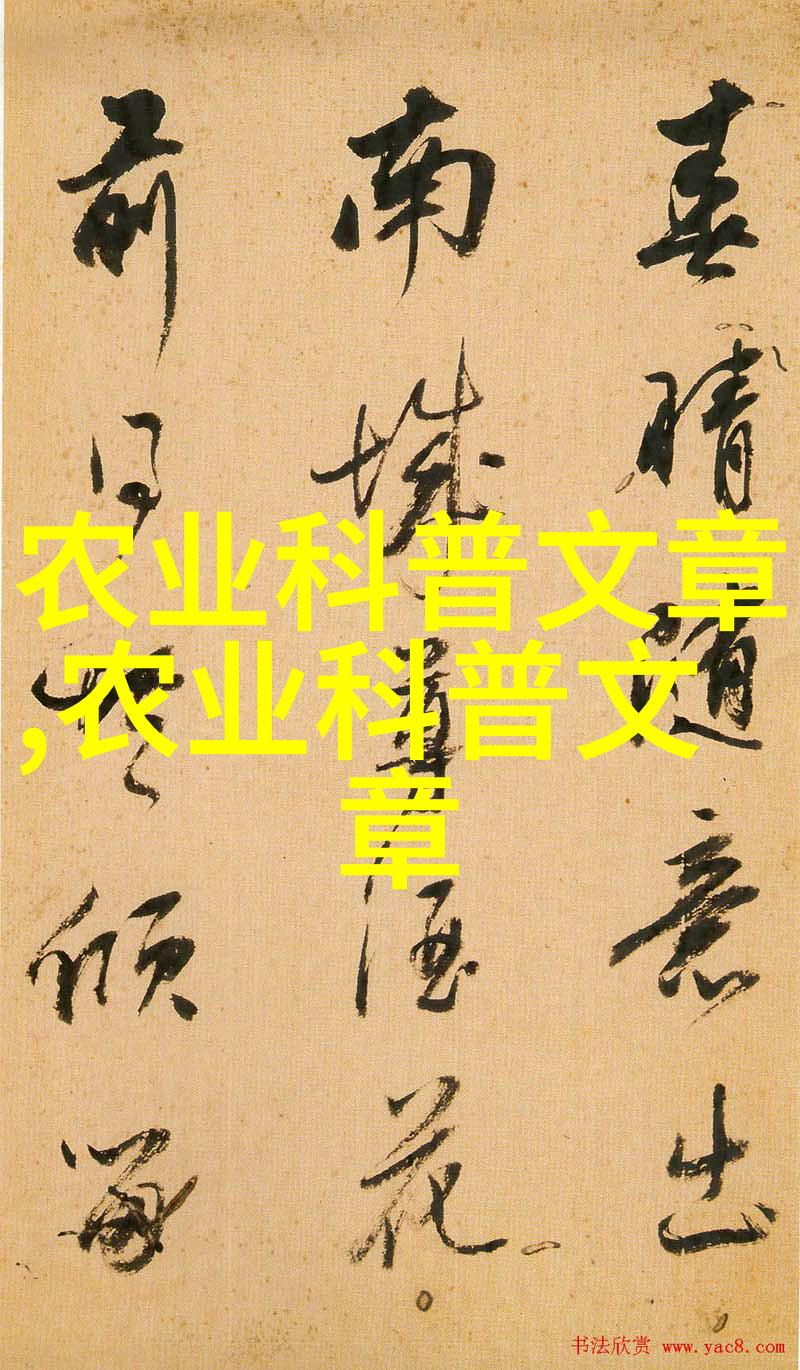 春晴隨意出
南城尊酒花
前同傾
农业科普文章
,农业科普文
章
书法欣赏 www.yac8.com